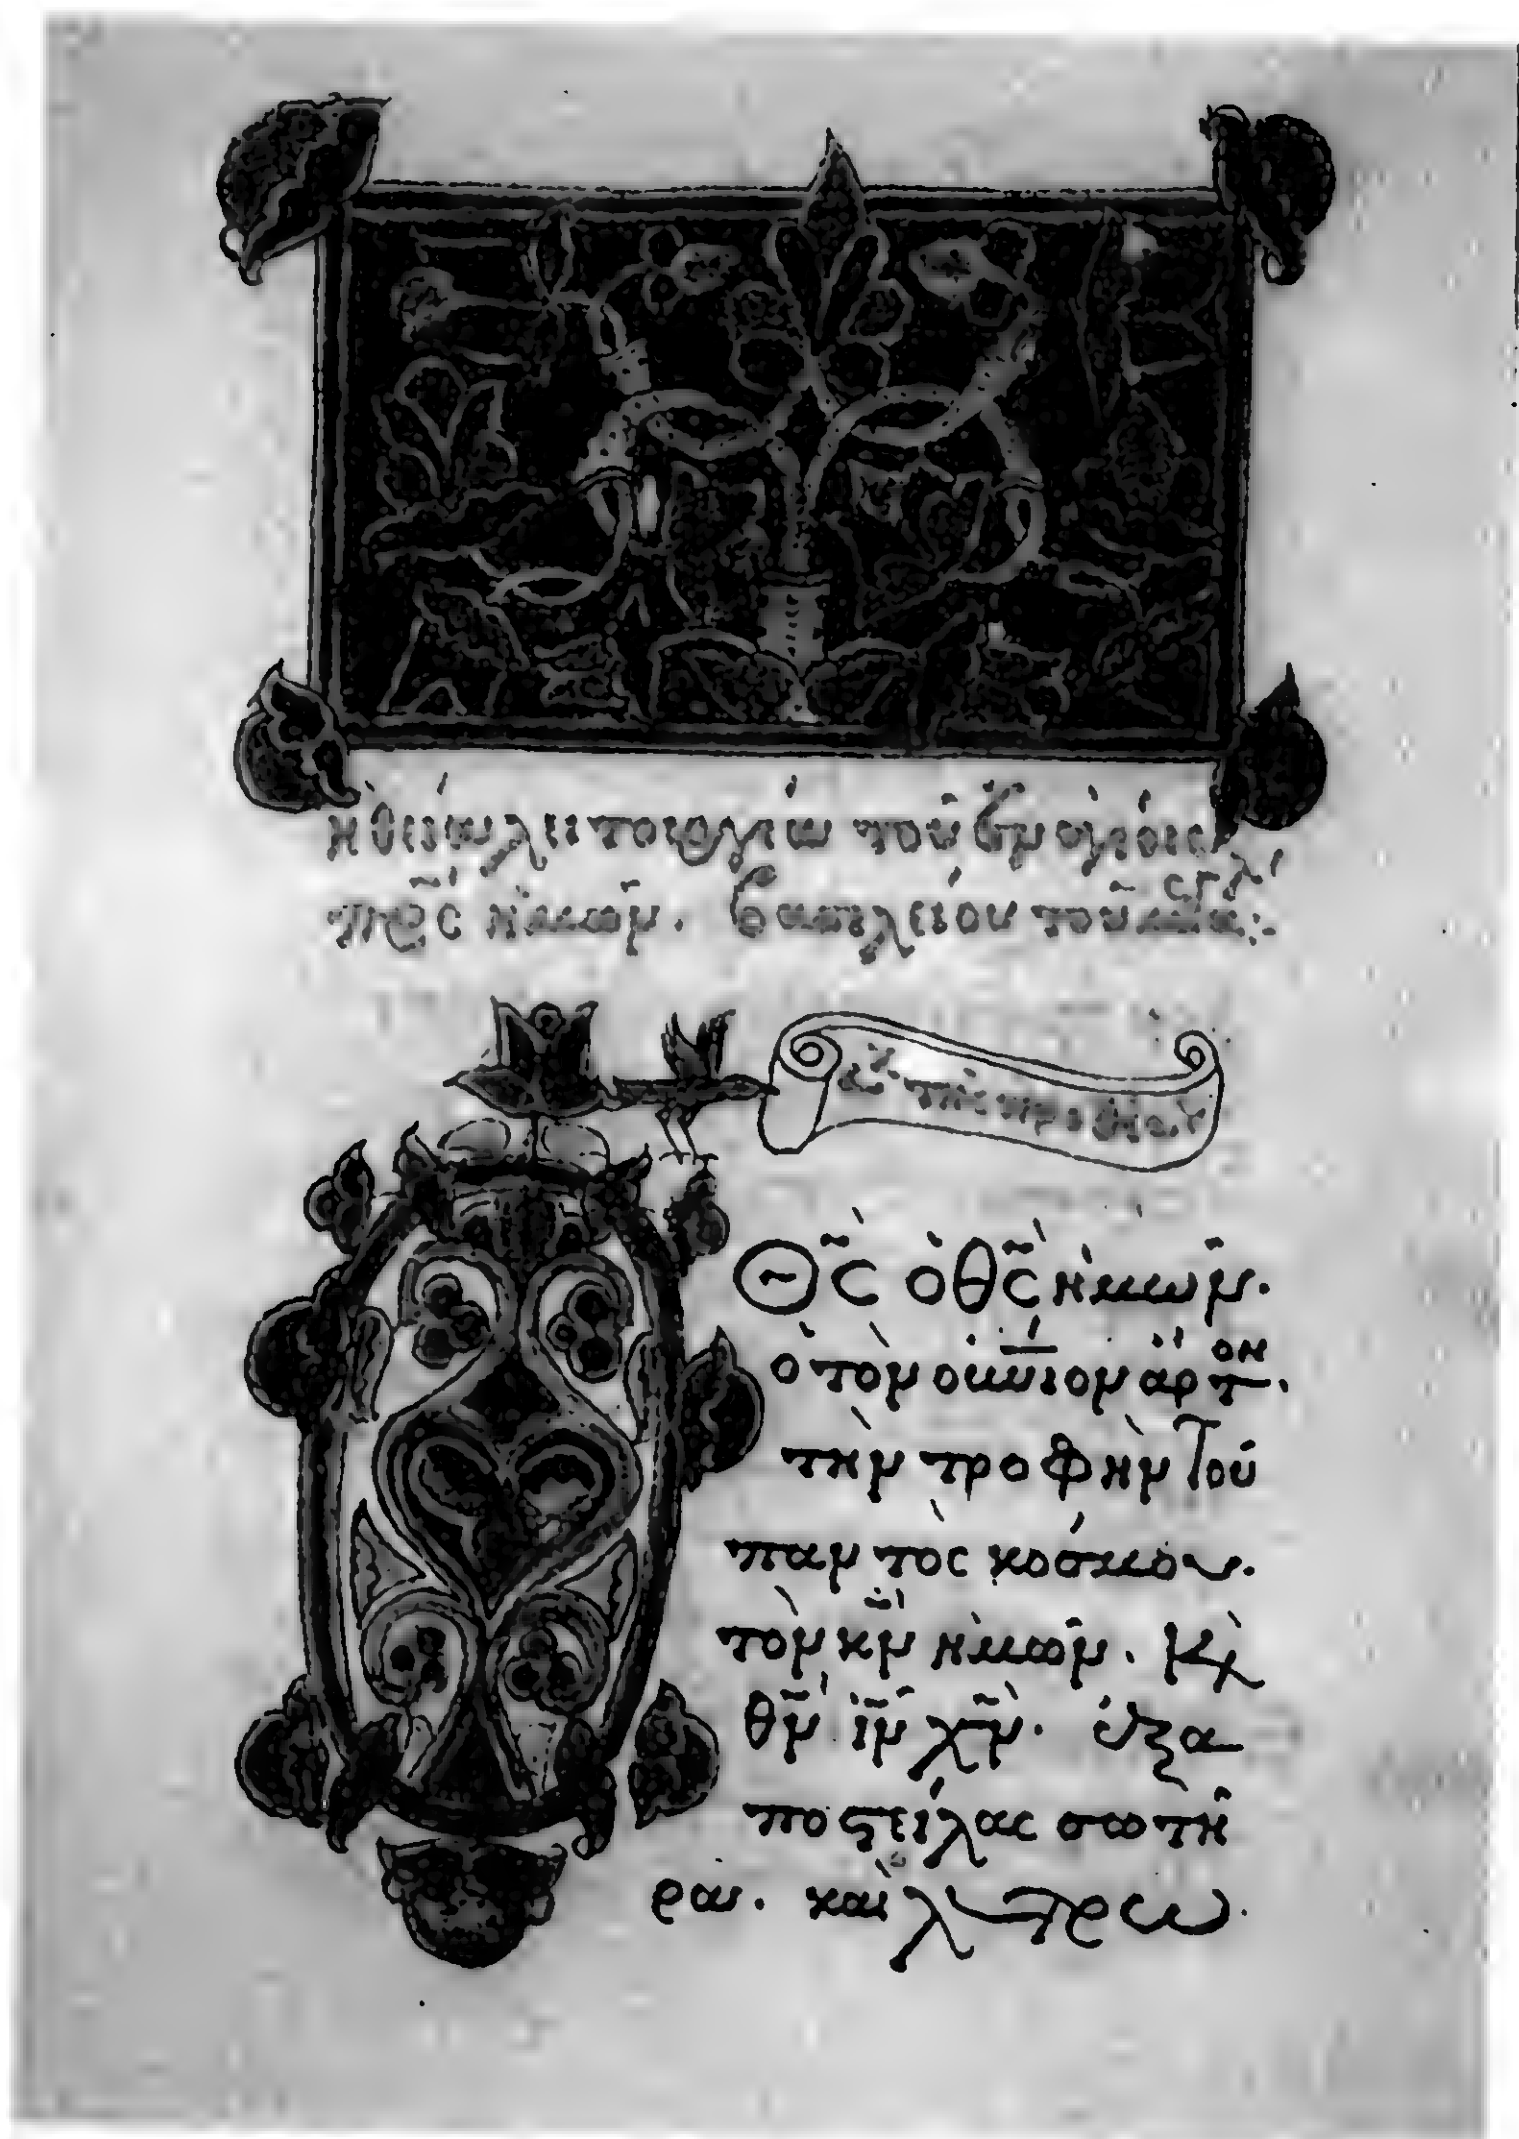 ἡ θεία λειτουργία τοῦ ἐν ἁγίοις
πρ̃ς ἡμῶν. βασιλείου τοῦ μεγάλ
εὐχὴ τῆς προθέσεως
Θ̃ς ὁ θ̃ς ἡμῶν.
ὁ τὸν οὐ̅νιον ἄρτον.
τὴν τροφὴν τοῦ
παντὸς κόσμου.
τὸν κ̃ν ἡμῶν. κὶ
θ̃ν ἰ̃ν χ̃ν. ἐξα
ποστείλας σωτῆ
ρα. καὶ λυτρω